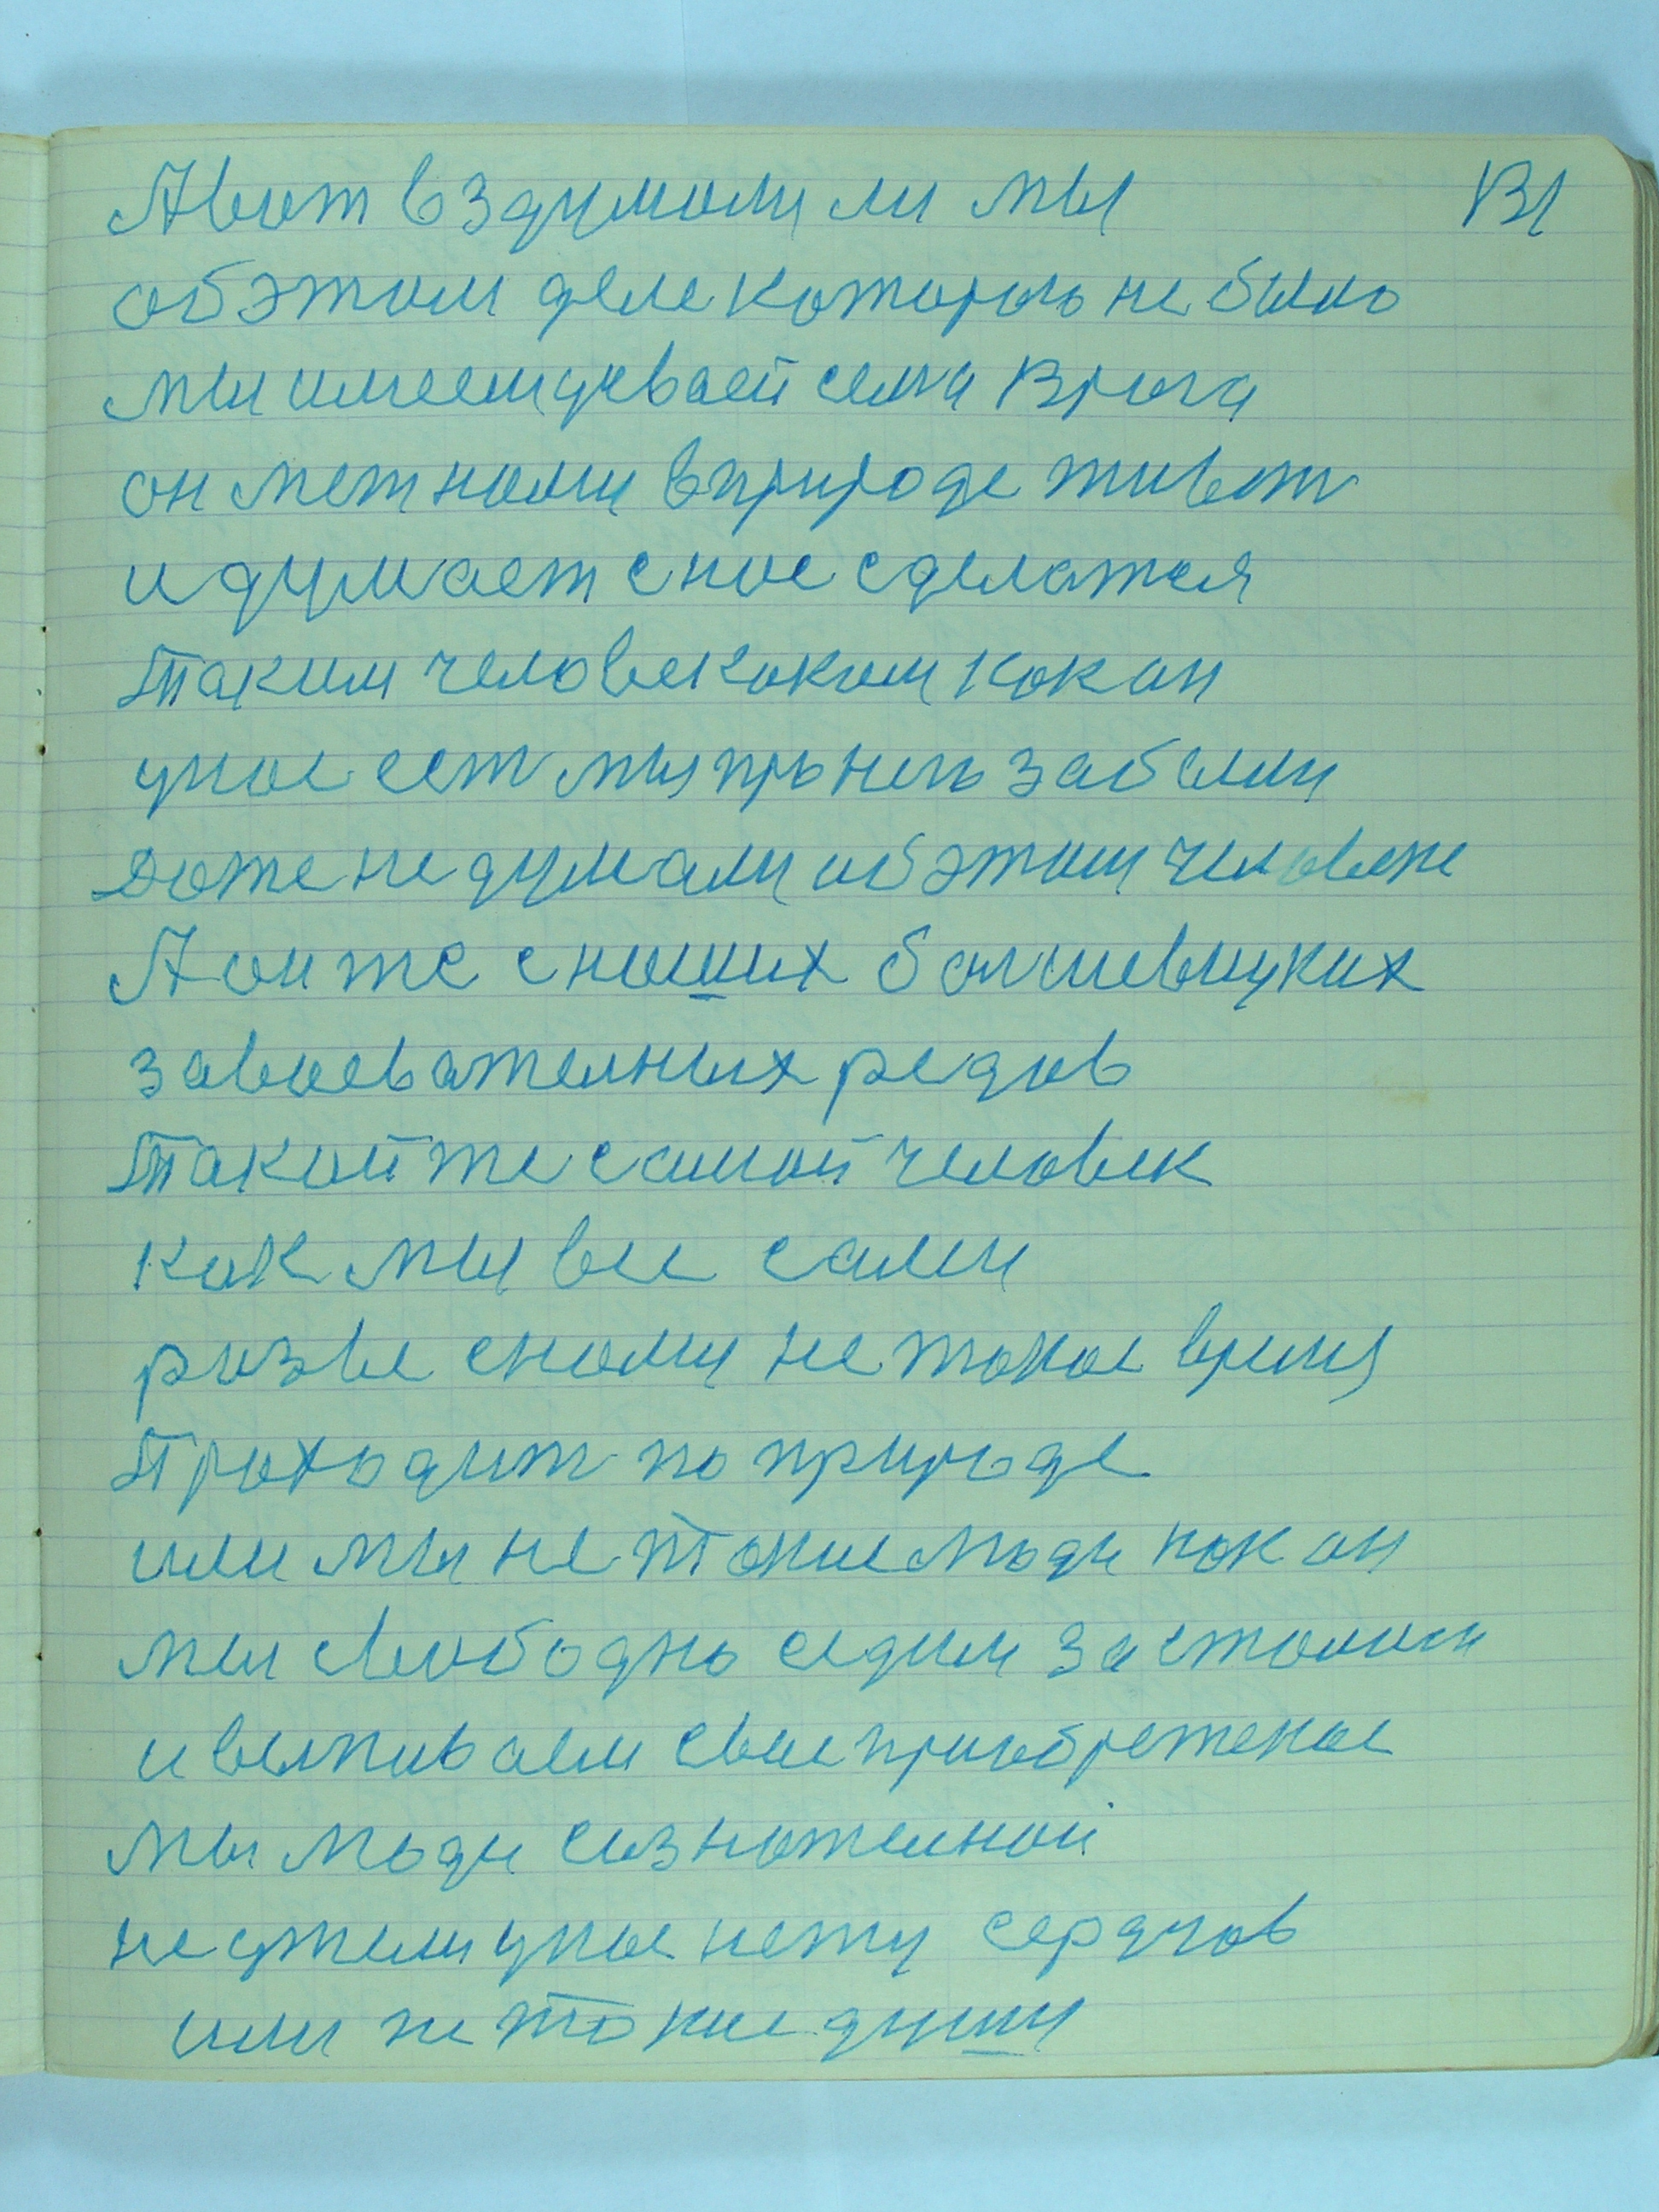 Авот вздумоли ли мы 131
обэтом деле которого небыло
мы имеем усваей семя врага
он меж нами вприроде живет
и думает снас сделатся
таким человекоким как он
унас ест мы про него забыли
Даже не думали обэтом человеке
А он же снаших болшевицких
завоевателных редов
такой же самой человек
как мы все сами
разве снами не такое время
Проходит по природе
или мы не такие люди как он
мы свободно седим застолом
и выпиваем свое приобретеное
мы люди сознателной
неужели унас нету сердцов
или не такие души